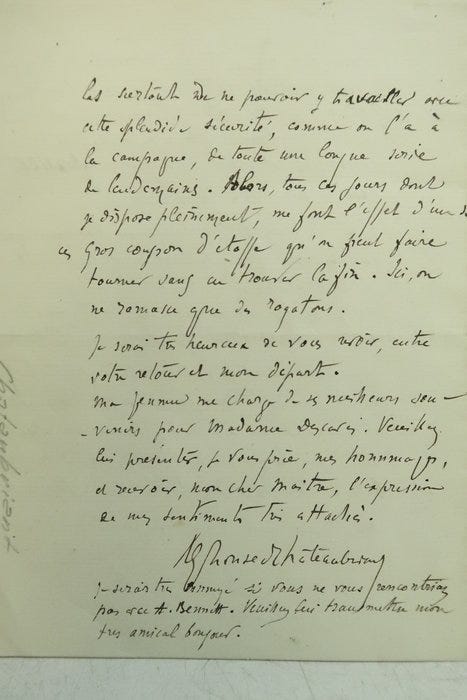 las surtout de ne pouvoir y travailler avec
cette splendide sécurité, comme on l'a à
la campagne, de toute une longue série
de lendemains. Alors, tous ces jours dont
je dispose pleinement, me font l'effet d'un de
ces gros coupon d'étoffe qu'on peut faire
tourner sans en trouver la fin. Ici, on
ne ramasse que des rogatons.
Je serai très heureux de vous revoir, entre
votre retour et mon départ.
Ma femme me charge de ses meilleurs sou-
-venirs pour Madame Descaves. Veuillez
lui présenter, je vous prie, mes hommages,
et recevoir, mon cher Maître, l'expression
de mes sentiments très attachés.
Alphonse de Châteaubriant
Je serais très ennuyé si vous ne vous rencontriez
pas avec H. Bennett. Veuillez lui transmettre mon
très amical bonjour.
Chateaubriant